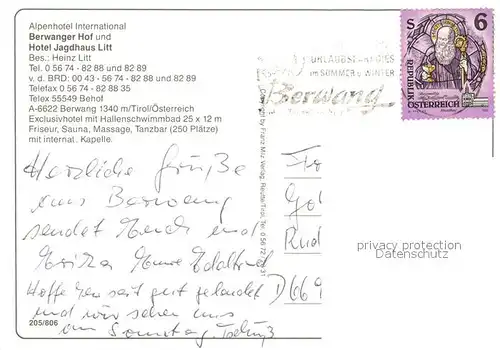 Alpenhotel International
Berwanger Hof und
Hotel Jagdhaus Litt
Bes.: Heinz Litt
Tel. 0 56 74 - 82 88 und 82 89
v. d. BRD: 00 43 - 56 74 - 82 88 und 82 89
Telefax 0 56 74 - 82 88 35
Telex 55549 Behof
A-6622 Berwang 1340 m/Tirol/Österreich
Exclusivhotel mit Hallenschwimmbad 25 x 12 m
Friseur, Sauna, Massage, Tanzbar (250 Plätze)
mit internat. Kapelle.
Herzliche Grüße
aus Berwang
sendet Euch und
Hoffe Ihr seit gut gelandet
und wir sehen uns
am Sonntag. Tschüß
205/806
Copyright by Franz Milz Verlag, Reutte/Tirol, Tel. 0 56 72
URLAUBSPARADIES
IM SOMMER u. WINTER
Berwang
S 6
REPUBLIK
ÖSTERREICH
D 669
privacy protection
Datenschutz